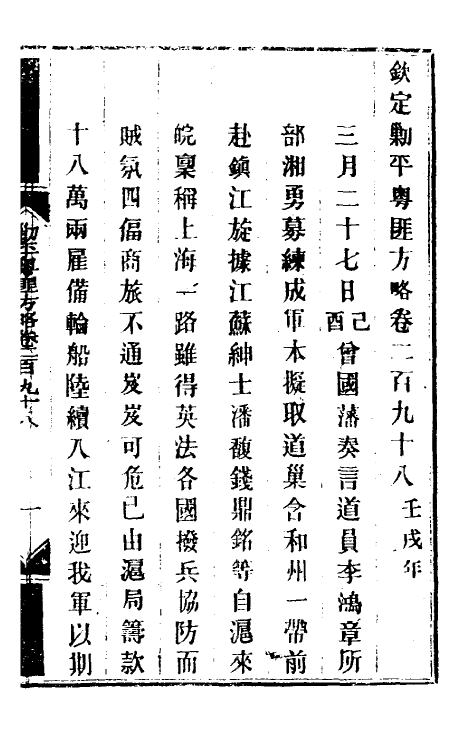 欽定勦平粵匪方略卷二百九十八 壬戌年
三月二十七日己酉曾國藩奏言道員李鴻章所
部湘勇募練成軍本擬取道巢含和州一帶前
赴鎮江旋據江蘇紳士潘馥錢鼎銘等自滬來
皖稟稱上海一路雖得英法各國撥兵協防而
賊氛四偪商旅不通岌岌可危已由滬局籌款
十八萬兩雇備輪船陸續入江來迎我軍以期
勦平粵匪方略卷二百九十八 一